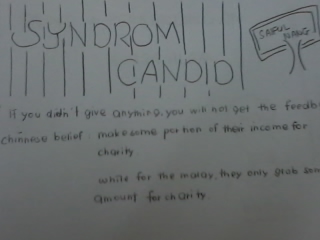 SYNDROM
CANDID
SAIFUL
NANG
If you didn't give anything, you will not get the feedb
chinnese belief : make some portion of their income for
charity
while for the malay, they only grab som
amount for charity